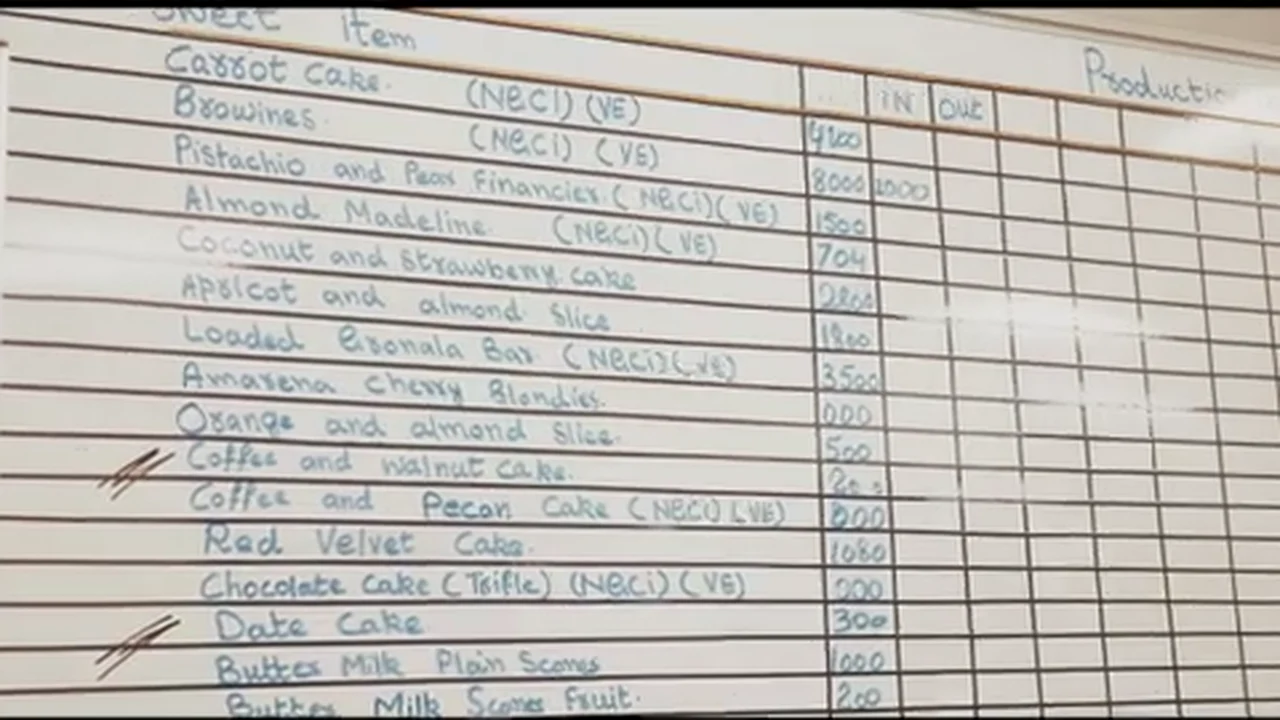 Sweet Item Production
IN Out
Carrot Cake. (NGCI) (VE) 4200
Browines. (NGCI) (VE) 8000 2000
Pistachio and Pear Financier. (NGCI) (VE) 1500
Almond Madeline. (NGCI) (VE) 704
Coconut and Strawberry Cake
Apricot and almond Slice 1800
Loaded Gronala Bar (NGCI) (VE) 3500
Amarena Cherry Blondies. 000
Orange and almond Slice. 500
Coffee and walnut cake. 200
Coffee and Pecan Cake (NGCI) (VE) 800
Red Velvet Cake. 1080
Chocolate Cake (Trifle) (NGCI) (VE) 200
Date Cake 300
Butter Milk Plain Scones 1000
Butter Milk Scones Fruit. 200